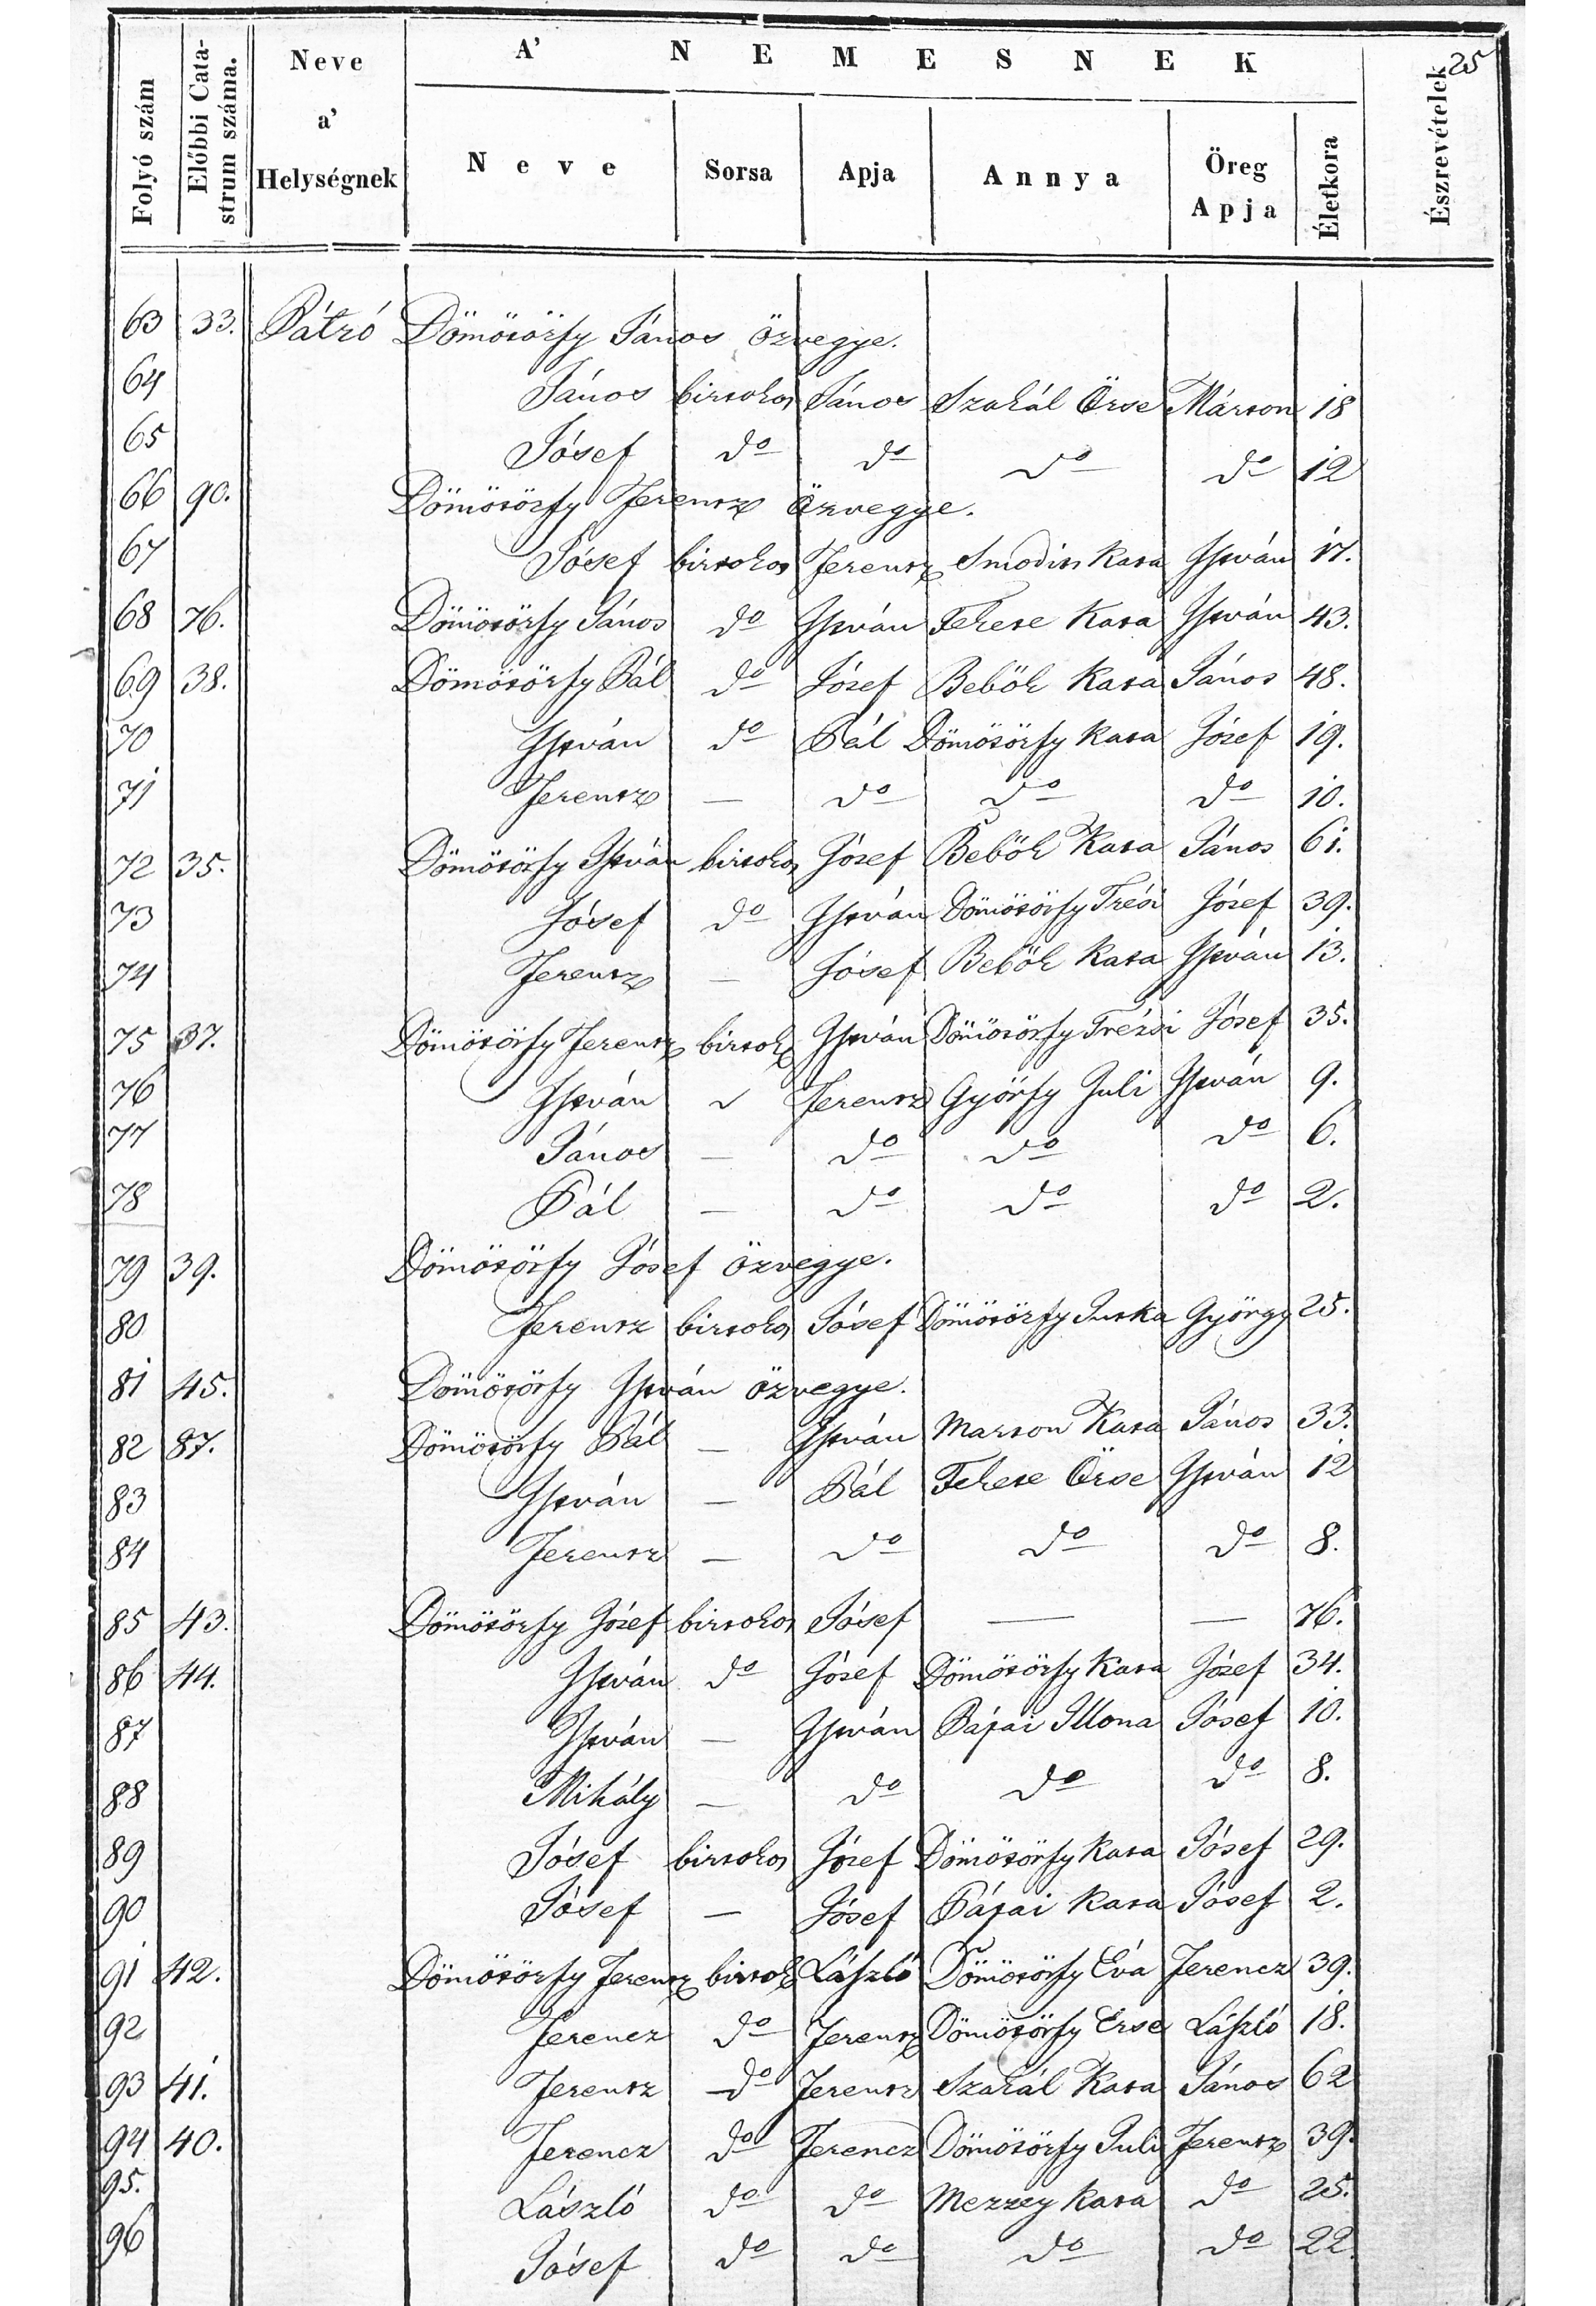 25
A' NEMESNEK
Folyó szám | Előbbi Catastrum száma. | Neve a' Helységnek | Neve | Sorsa | Apja | Annya | Öreg Apja | Életkora | Észrevételek
63 33. Pátró Dömötörfy János özvegye.
64 János birtokos János Szakál Örse Márton 18
65 Jósef do do do do 12
66 90. Dömötörfy Ferentz özvegye.
67 Jósef birtokos Ferentz Smodits Kata István 17.
68 76. Dömötörfy János do István Fekete Kata István 43.
69 38. Dömötörfy Pál do József Bebök Kata János 48.
70 István do Pál Dömötörfy Kata József 19.
71 Ferentz — do do do 10.
72 35. Dömötörfy István birtokos József Bebök Kata János 61.
73 Jósef do István Dömötörfy Trési József 39.
74 Ferentz — Jósef Bebök Kata István 13.
75 37. Dömötörfy Ferentz birtok István Dömötörfy Trézsi Jósef 35.
76 István Ferentz Györfy Juli István 9.
77 János — do do do 6.
78 Pál — do do do 2.
79 39. Dömötörfy Jósef özvegye.
80 Ferentz birtokos Jósef Dömötörfy Jutka György 25.
81 45. Dömötörfy István özvegye.
82 87. Dömötörfy Pál — István Marton Kata János 33.
83 István — Pál Fekete Örse István 12
84 Ferentz — do do do 8.
85 43. Dömötörfy József birtokos Jósef — — 76.
86 44. István do József Dömötörfy Kata József 34.
87 István — István Pápai Illona Jósef 10.
88 Mihály — do do do 8.
89 Jósef birtokos József Dömötörfy Kata Jósef 29.
90 Jósef — Jósef Pápai Kata Jósef 2.
91 42. Dömötörfy Ferentz birtok László Dömötörfy Éva Ferencz 39.
92 Ferencz do Ferentz Dömötörfy Erse László 18.
93 41. Ferentz do Ferentz Szakál Kata János 62
94 40. Ferencz do Ferencz Dömötörfy Juli Ferentz 39.
95. László do do Mezzey Kata do 25.
96 Jósef do do do do 22